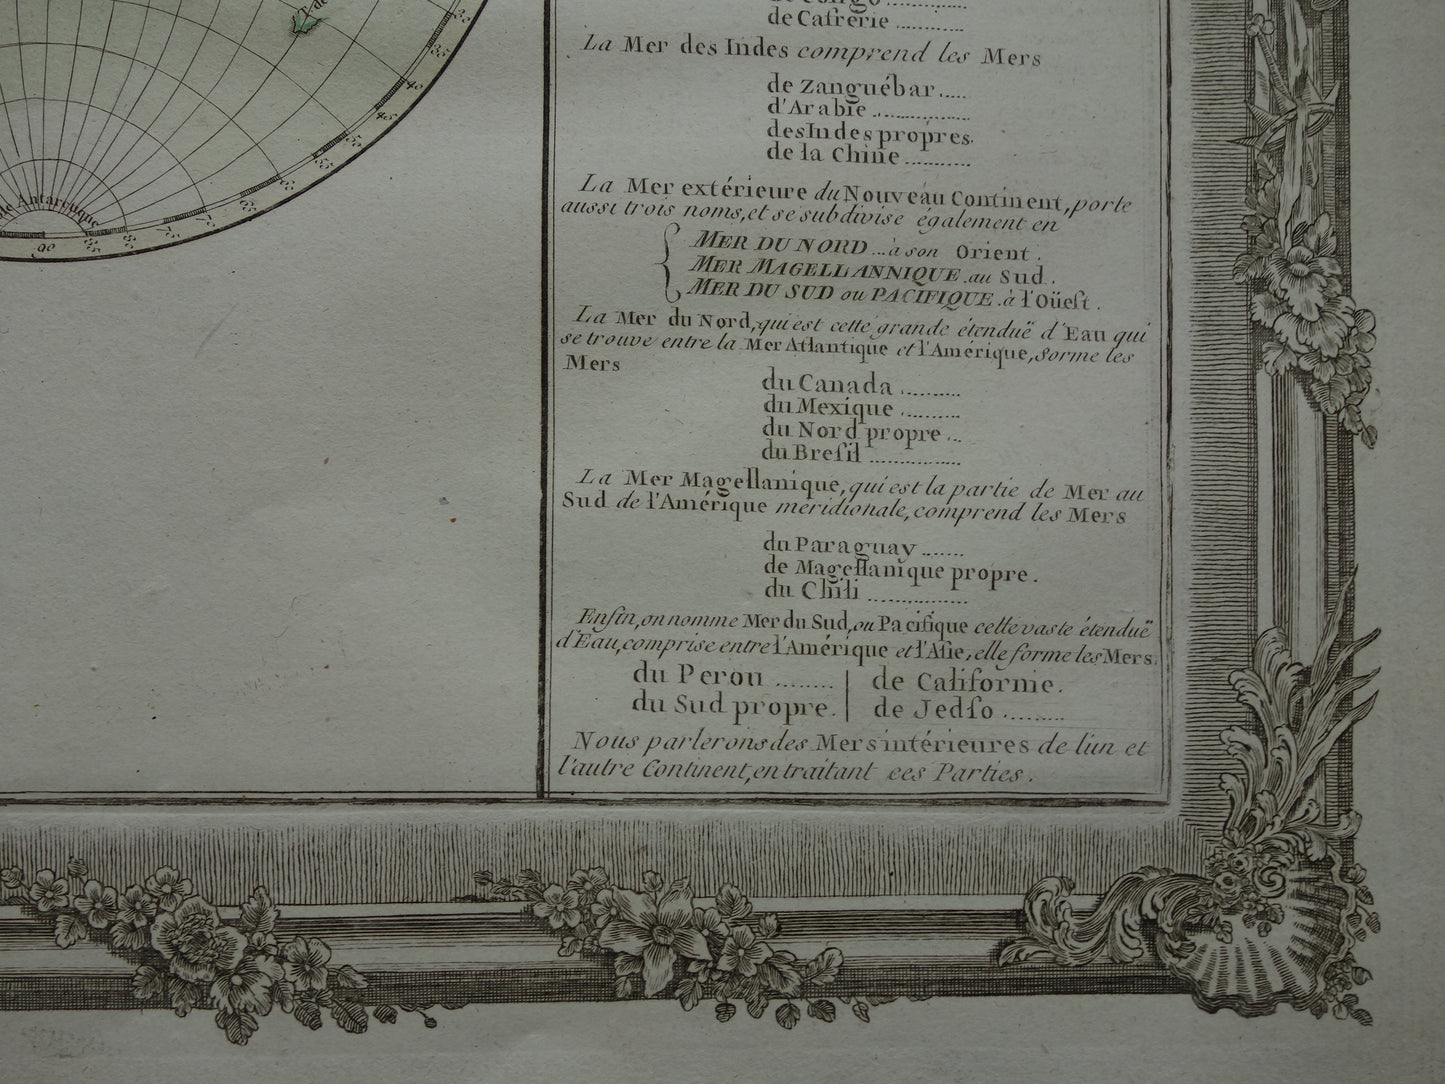 de Congo ..........
de Cafrérie ..........
La Mer des Indes comprend les Mers
de Zanguébar .....
d'Arabie ..............
des Indes propres.
de la Chine ..........
La Mer extérieure du Nouveau Continent, porte
aussi trois noms, et se subdivise également en
MER DU NORD ... à son Orient.
MER MAGELLANNIQUE. au Sud.
MER DU SUD ou PACIFIQUE. à l'Oüeſt.
La Mer du Nord, qui est cette grande étenduë d'Eau qui
se trouve entre la Mer Atlantique et l'Amérique, forme les
Mers
du Canada ..........
du Mexique ..........
du Nord propre ...
du Breſil ...............
La Mer Magellanique, qui est la partie de Mer au
Sud de l'Amérique méridionale, comprend les Mers
du Paraguay .......
de Magellanique propre.
du Chili ................
Enfin, on nomme Mer du Sud, ou Pacifique cette vaste étenduë
d'Eau, comprise entre l'Amérique et l'Aſie, elle forme les Mers.
du Perou ......... | de Californie.
du Sud propre. | de Jedſo ..........
Nous parlerons des Mers intérieures de l'un et
l'autre Continent, en traitant ces Parties.
T. de
35
40
45
50
55
60
65
70
75
80
85
90
Pole Antarctique